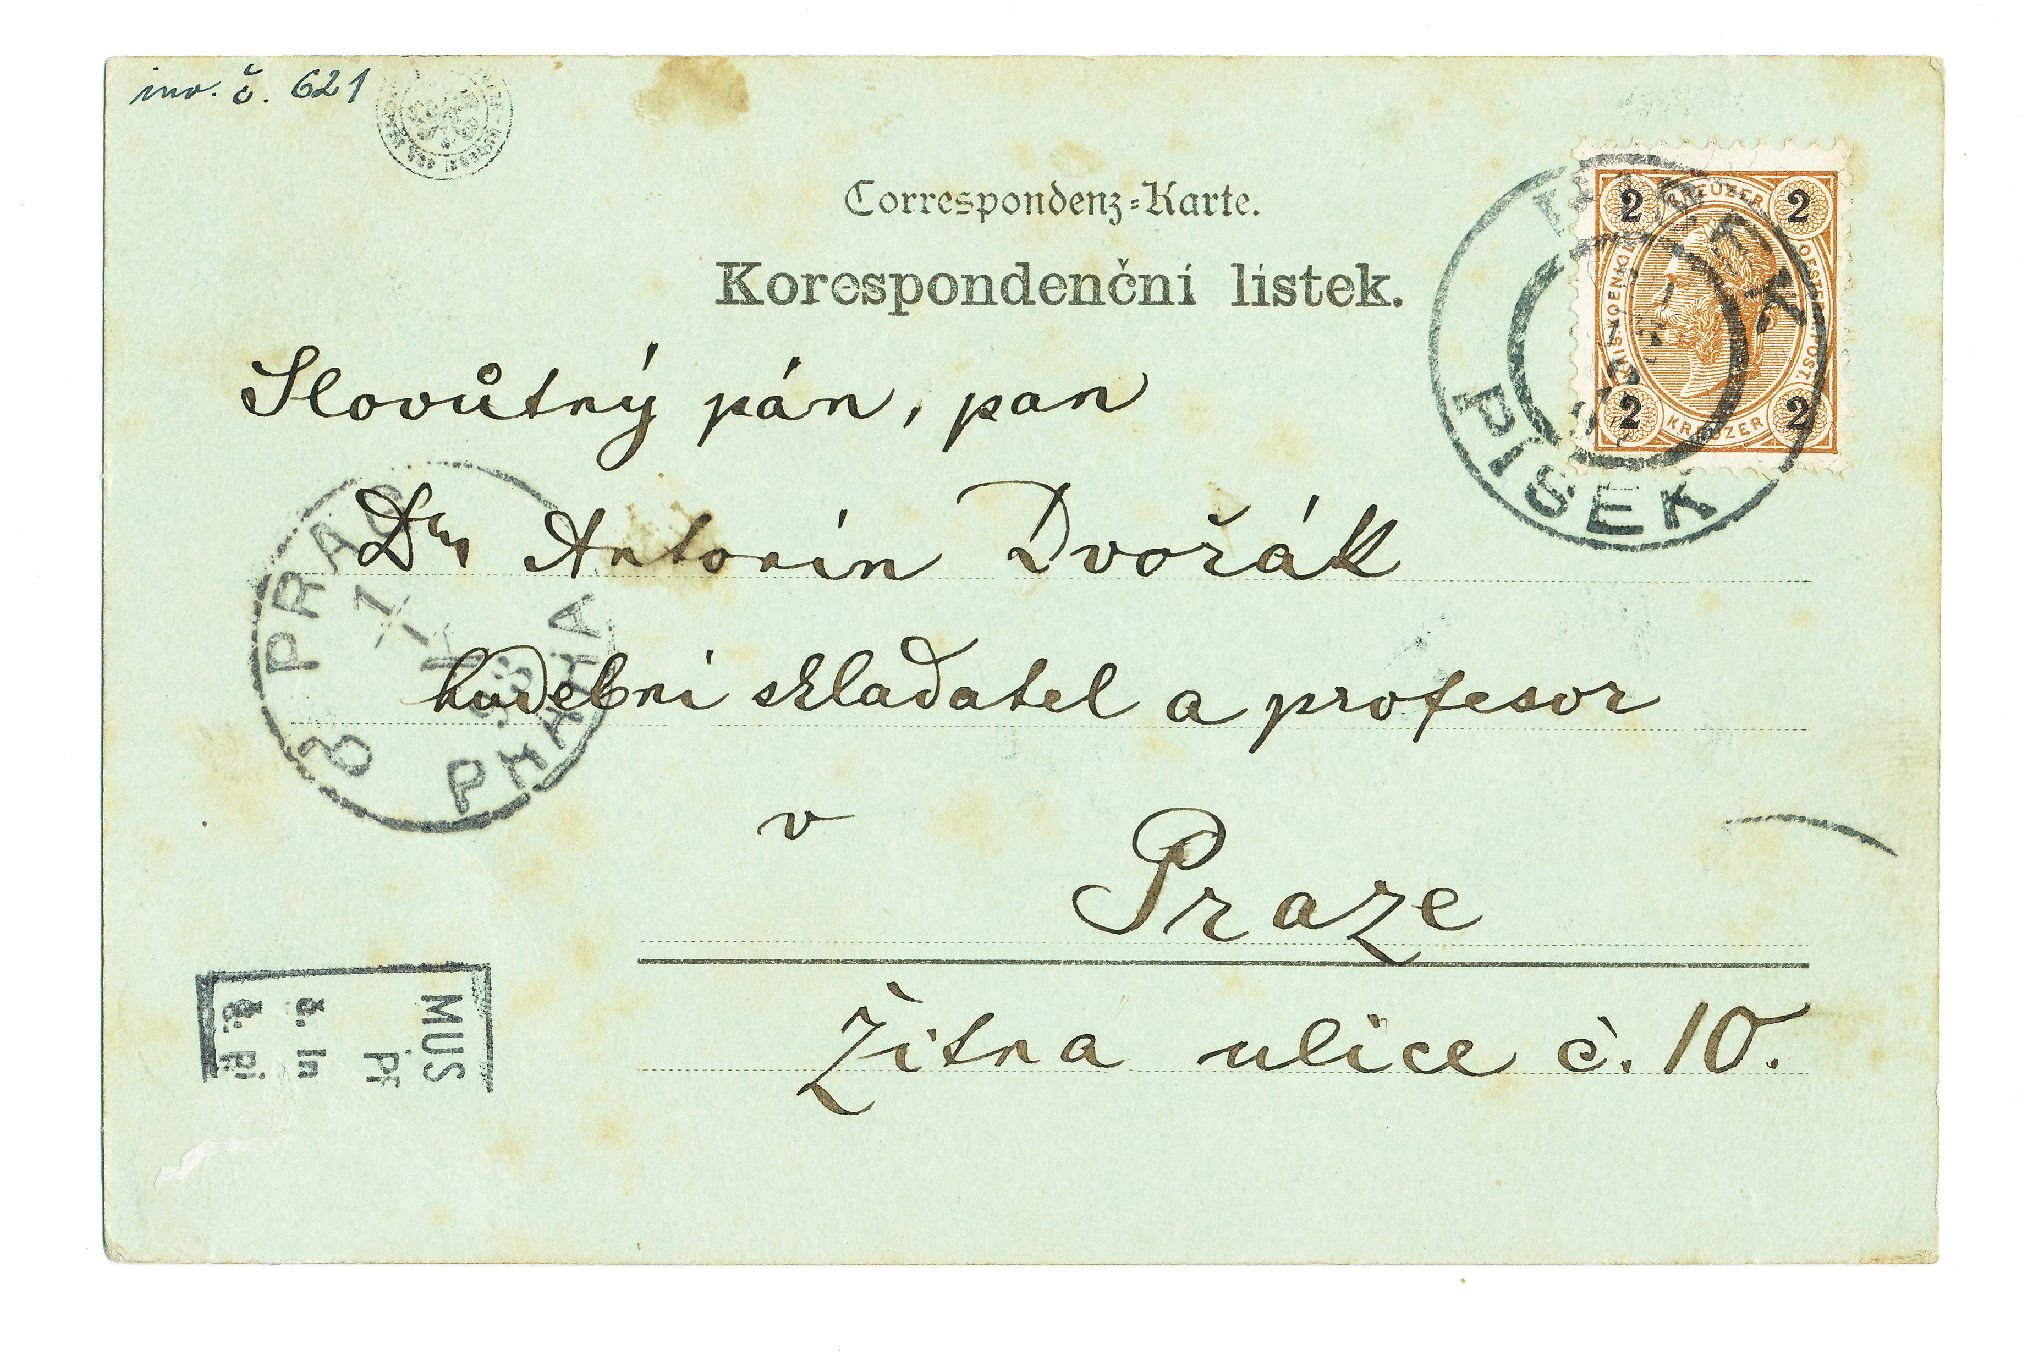 inv. č. 621
Correspondenz-Karte.
Korespondenční lístek.
Slovůtný pán, pan
Dr Antonín Dvořák
hudební skladatel a profesor
v Praze
Žitna ulice č. 10.
2 KREUZER 2
2 KREUZER 2
PÍSEK
PISEK
8 PRAG
PRAHA
MUS
Př
č. In
č. Př